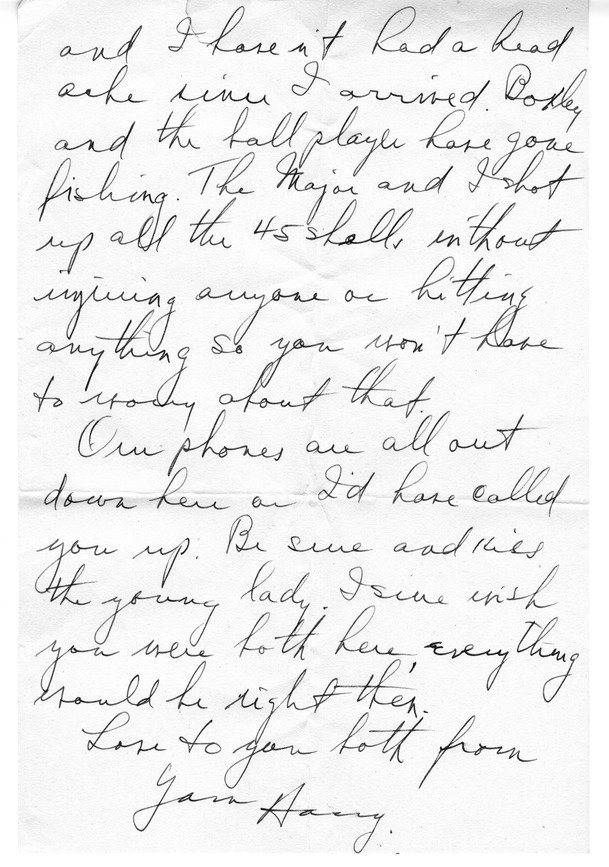 and I have n't had a head
ache since I arrived. Boxley
and the ball player have gone
fishing. The Major and I shot
up all the 45 shells without
injuring anyone or hitting
anything so you won't have
to worry about that.
Our phones are all out
down here or I'd have called
you up. Be sure and kiss
the young lady. I sure wish
you were both here, everything
would be right then.
Love to you both from
Your Harry.